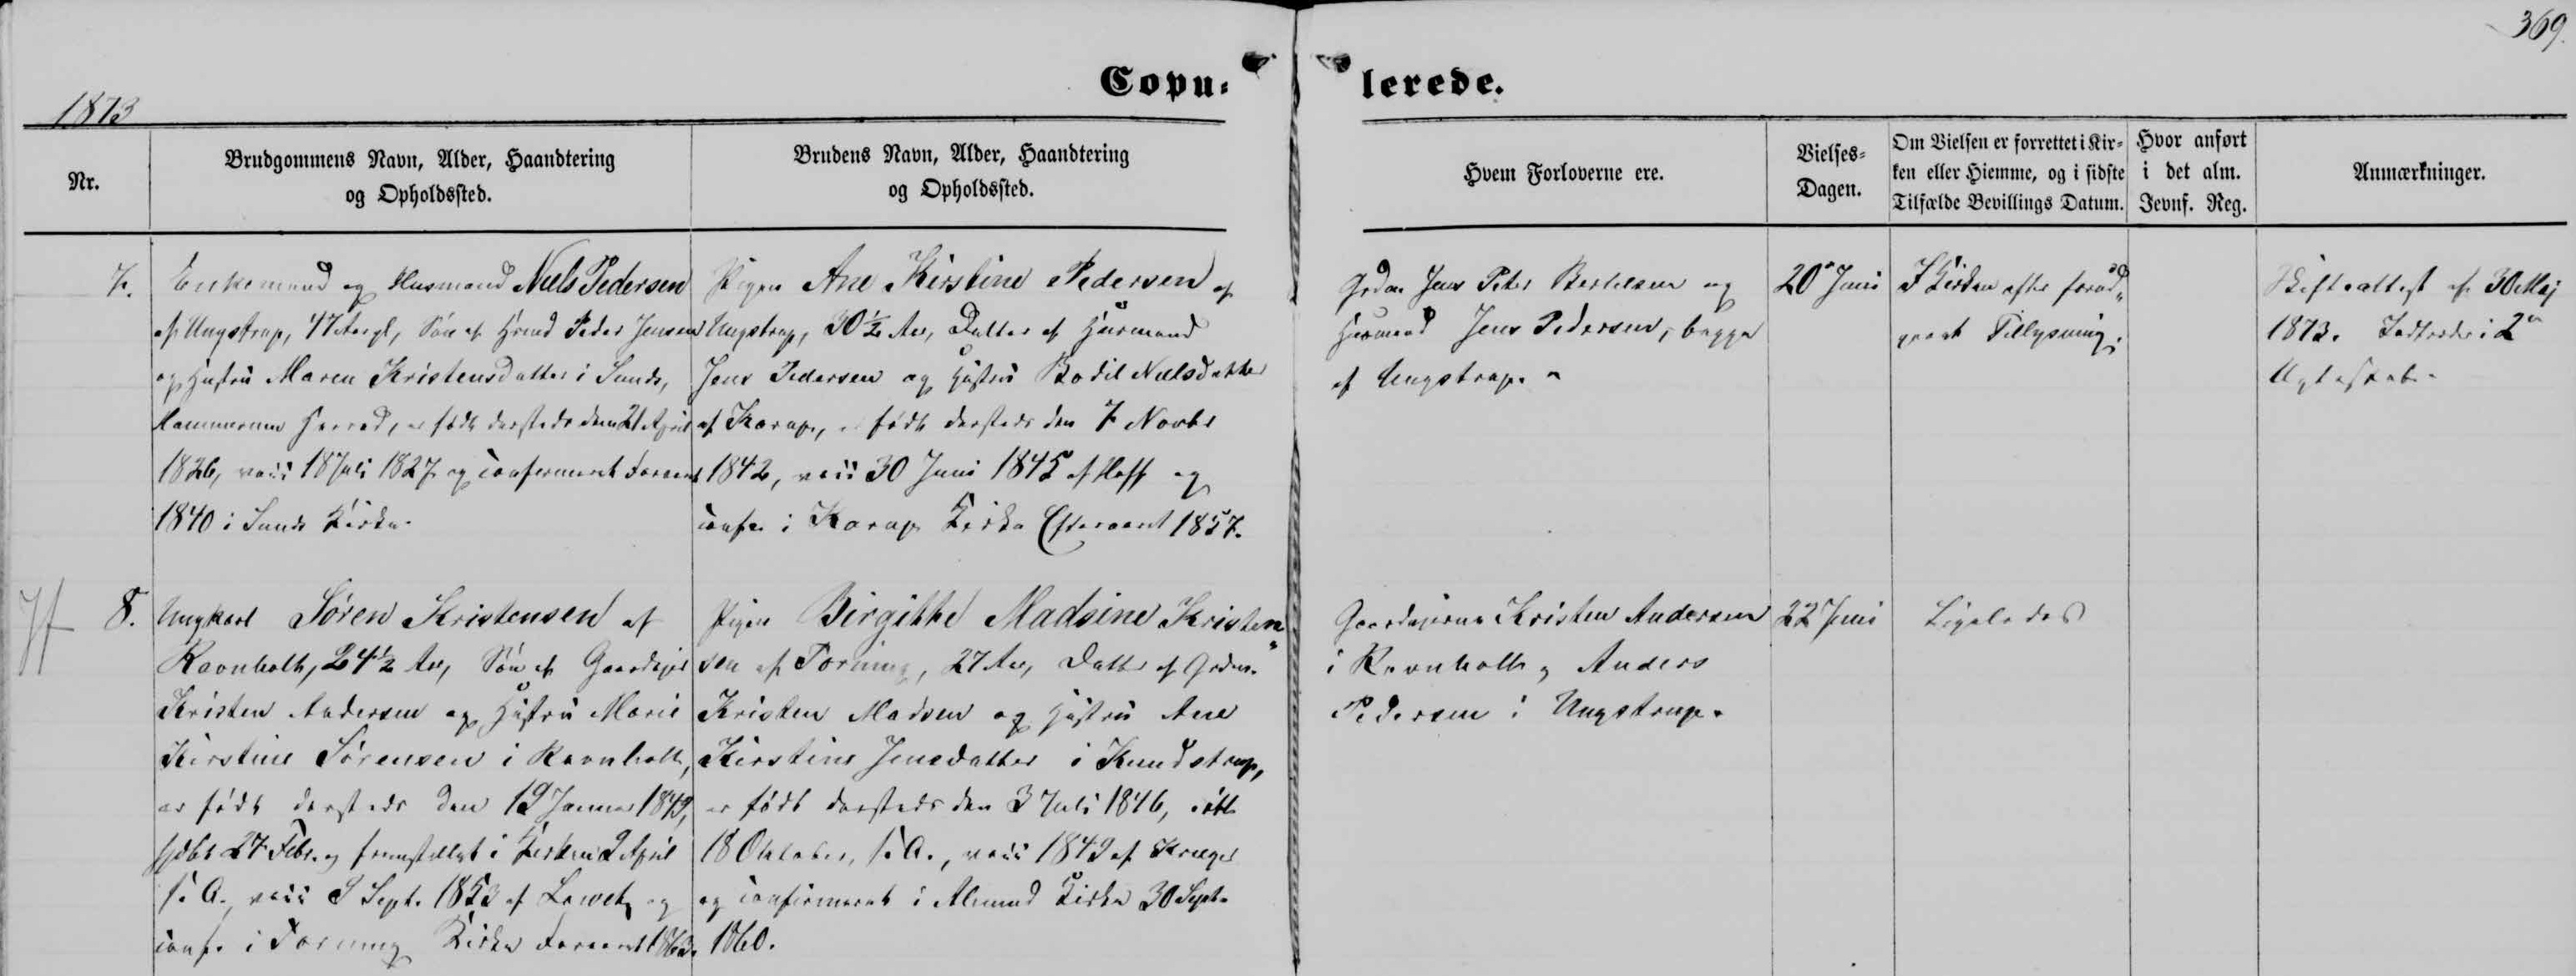 369.
Copu= lerede.
1873
Nr.
Brudgommens Navn, Alder, Haandtering
og Opholdssted.
Brudens Navn, Alder, Haandtering
og Opholdssted.
Hvem Forloverne ere.
Vielses=
Dagen.
Om Vielsen er forrettet i Kir=
ken eller Hiemme, og i sidste
Tilfælde Bevillings Datum.
Hvor anført
i det alm.
Jevnf. Reg.
Anmærkninger.
7.
Enkemand og Husmand Niels Pedersen
af Ungstrup, 47 Aar gl, Søn af Hmd Peder Jensen
og Hustru Maren Kristensdatter i Sunds,
Hammerum Herred, er født dersteds den 21 April
1826, vacc 18 Juli 1827 og confirmeret Foraaret
1840 i Sunds Kirke.
Pigen Ane Kirstine Pedersen af
Ungstrup, 30 1/2 Aar, Datter af Husmand
Jens Pedersen og Hustru Bodil Nielsdatter
af Karup, født dersteds den 7 Novbr
1842, vacc 30 Juni 1845 af Hoff og
conf. i Karup Kirke Efteraaret 1857.
Grdm. Jens Peter Bertelsen og
Husmand Jens Pedersen, begge
af Ungstrup.
20 Juni
I Kirken efter forud„
gaaet Tillysning.
Skifteattest af 30 Maj
1873. Indtræder i 2
Ægteskab.
8.
Ungkarl Søren Kristensen af
Ravnholt, 24 1/2 Aar, Søn af Gaardejer
Kristen Andersen og Hustru Marie
Kirstine Sørensen i Ravnholt,
er født dersteds den 19 Januar 1849,
hjdbt 27 Febr. og fremstillet i Kirken 9 April
s. A., vacc 9 Sept. 1853 af Lowetz og
conf. i Torning Kirke Foraaret 1863.
Pigen Birgitte Madsine Kristen„
sen af Torning, 27 Aar, Datter af Grdm.
Kristen Madsen og Hustru Ane
Kirstine Jensdatter i Knudstrup,
er født dersteds den 3 Juli 1846, døbt
18 Oktober, s. A., vacc 1849 af Krüger
og confirmeret i Almind Kirke 30 Sept.
1860.
Gaardejerne Kristen Andersen
i Ravnholt og Anders
Pedersen i Ungstrup.
22 Juni
Ligeledes